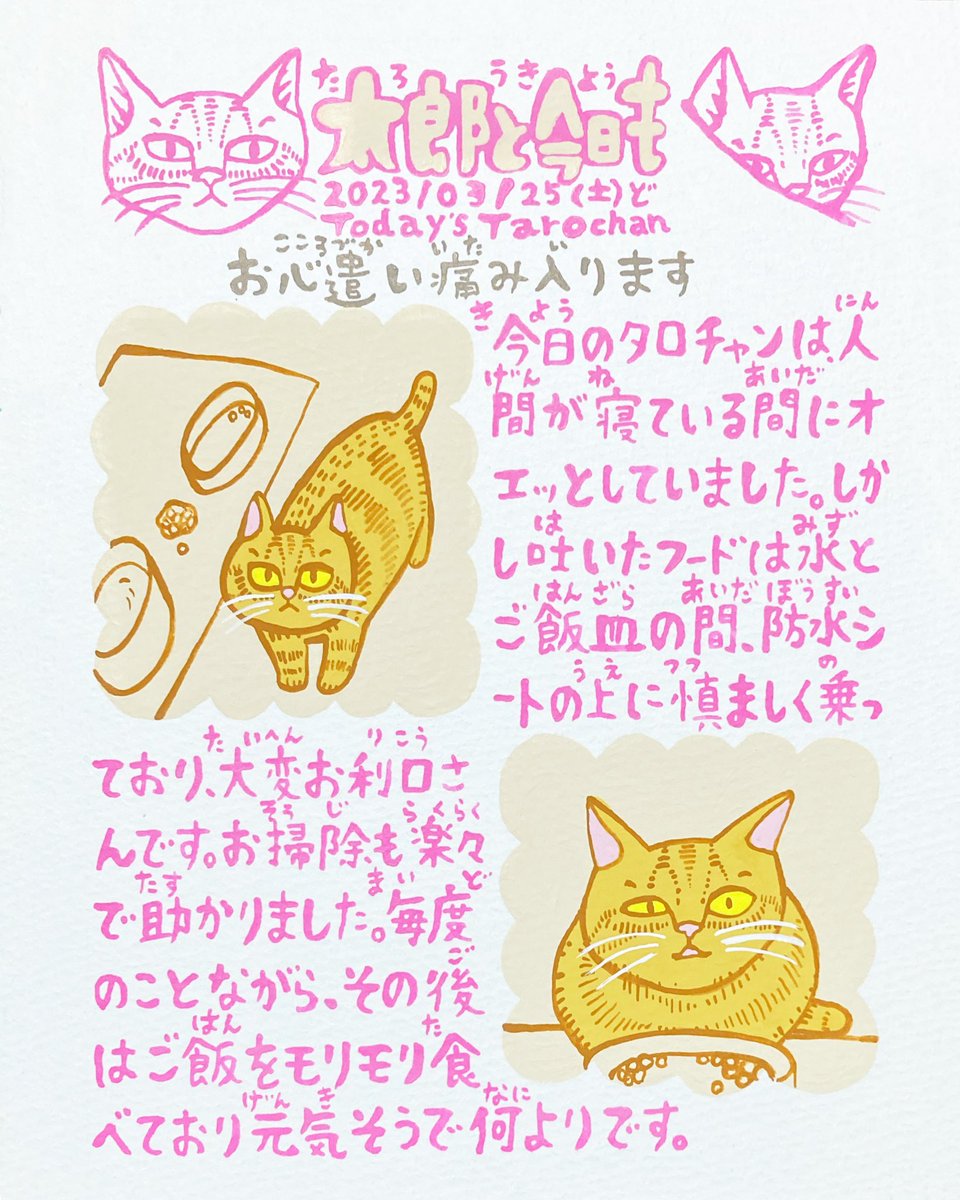 太郎と今日も
2023/03/25(土)ど
Today's Tarochan
お心遣い痛み入ります
今日のタロチャンは、人
間が寝ている間にオ
エッとしていました。しか
し吐いたフードは水と
ご飯皿の間、防水シ
ートの上に慎ましく乗っ
ており、大変お利口さ
んです。お掃除も楽々
で助かりました。毎度
のことながら、その後
はご飯をモリモリ食
べており元気そうで何よりです。